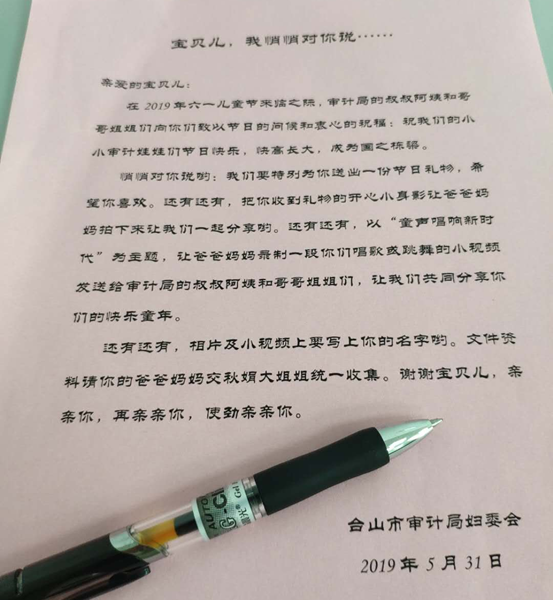 宝贝儿，我悄悄对你说……
亲爱的宝贝儿：
在2019年六一儿童节来临之际，审计局的叔叔阿姨和哥
哥姐姐们向你们致以节日的问候和衷心的祝福：祝我们的小
小审计娃娃们节日快乐，快高长大，成为国之栋梁。
悄悄对你说哟：我们要特别为你送出一份节日礼物，希
望你喜欢。还有还有，把你收到礼物的开心小身影让爸爸妈
妈拍下来让我们一起分享哟。还有还有，以“童声唱响新时
代”为主题，让爸爸妈妈录制一段你们唱歌或跳舞的小视频
发送给审计局的叔叔阿姨和哥哥姐姐们，让我们共同分享你
们的快乐童年。
还有还有，相片及小视频上要写上你的名字哟。文件资
料请你的爸爸妈妈交秋娟大姐姐统一收集。谢谢宝贝儿，亲
亲你，再亲亲你，使劲亲亲你。
台山市审计局妇委会
2019年5月31日